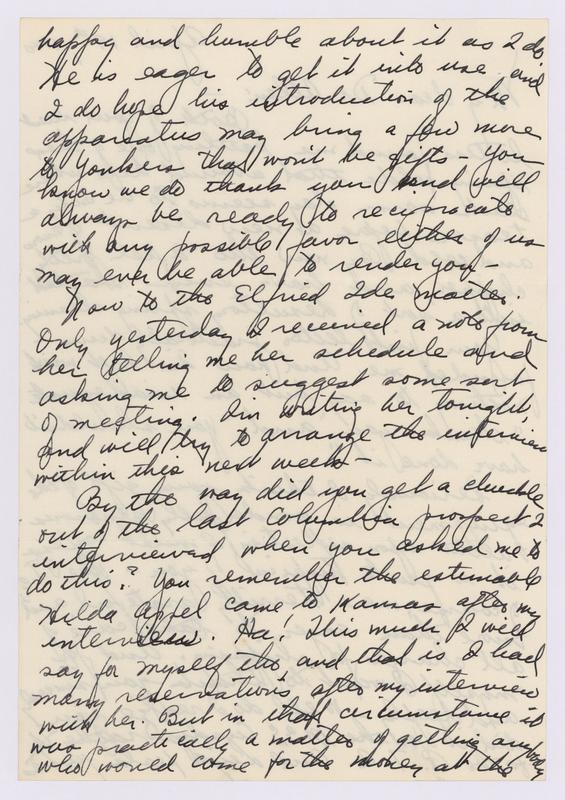 happy and humble about it as I do.
He is eager to get it into use and
I do hope his introduction of the
apparatus may bring a few more
to Yonkers that won't be gifts – You
know we do thank you and will
always be ready to reciprocate
with any possible favor either of us
may ever be able to render you –
Now to the Elfried Ides matter.
Only yesterday I received a note from
her telling me her schedule and
asking me to suggest some sort
of meeting. I'm writing her tonight,
and will try to arrange the interview
within this next week –
By the way did you get a chuckle
out of the last Columbia prospect I
interviewed when you asked me to
do this? You remember the estimable
Hilda Appel came to Kansas after my
interview. Ha! This much I will
say for myself tho and that is I had
many reservations after my interview
with her. But in that circumstance it
was practically a matter of getting anybody
who would come for the money at the